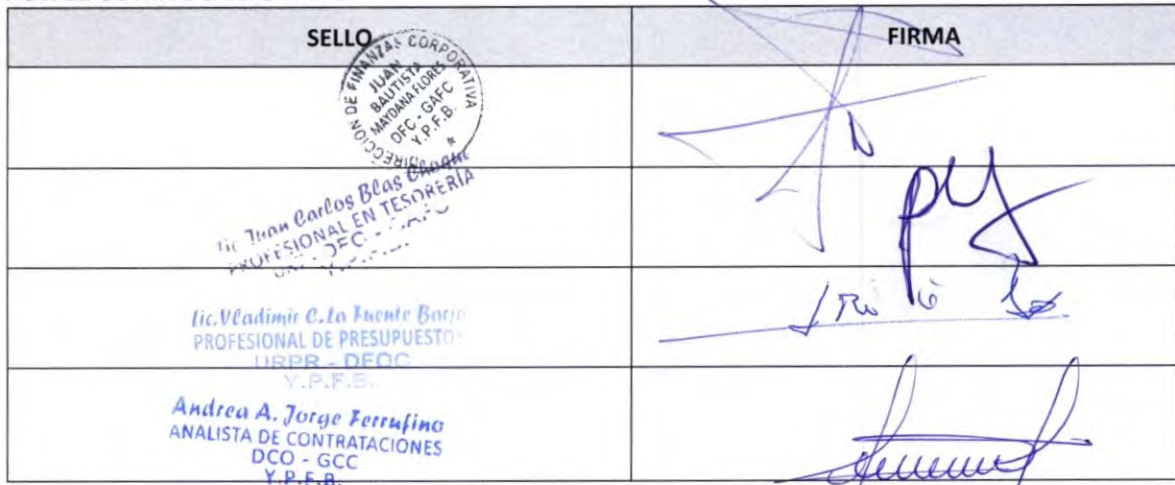 SELLO
FIRMA
DIRECCIÓN DE FINANZAS CORPORATIVA
JUAN
BAUTISTA
MAYDANA FLORES
DFC - GAFC
Y.P.F.B.
Lic Juan Carlos Blas
PROFESIONAL EN TESORERÍA
Lic. Vladimir C. La Fuente
PROFESIONAL DE PRESUPUESTO
URPR - DFOC
Y.P.F.B.
Andrea A. Jorge Ferrufino
ANALISTA DE CONTRATACIONES
DCO - GCC
Y.P.F.B.